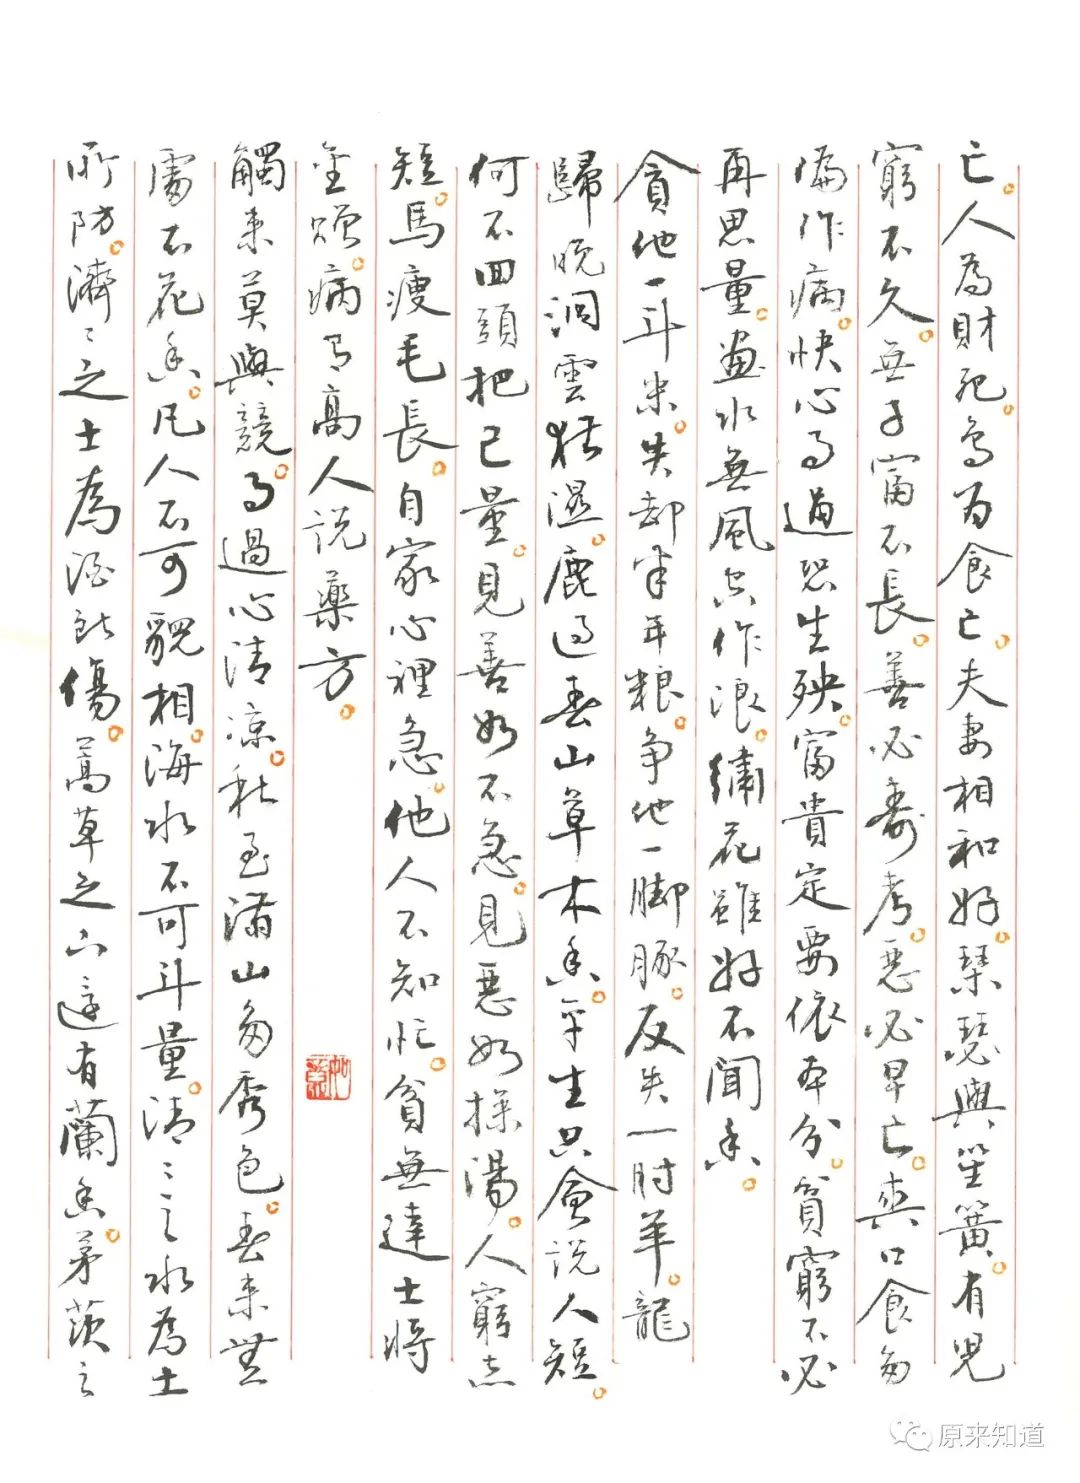 亡。人為財死。鳥為食亡。夫妻相和好。琴瑟與笙簧。有兒
窮不久。無子富不長。善必壽考。惡必早亡。爽口食多
偏作病。快心事過恐生殃。富貴定要依本分。貧窮不必
再思量。畫水無風空作浪。繡花雖好不聞香。
貪他一斗米。失却半年粮。争他一脚豚。反失一肘羊。龍
歸晚洞雲猶濕。鹿過春山草木香。平生只會説人短。
何不回頭把己量。見善如不急。見惡如探湯。人窮志
短。馬瘦毛長。自家心裡急。他人不知忙。貧無達士將
金贈。病有高人説藥方。
觸來莫與競。事過心清凉。秋至滿山多秀色。春來無
處不花香。凡人不可貌相。海水不可斗量。清〻之水為土
所防。濟〻之士為酒所傷。蒿草之下還有蘭香。茅茨之
原来知道